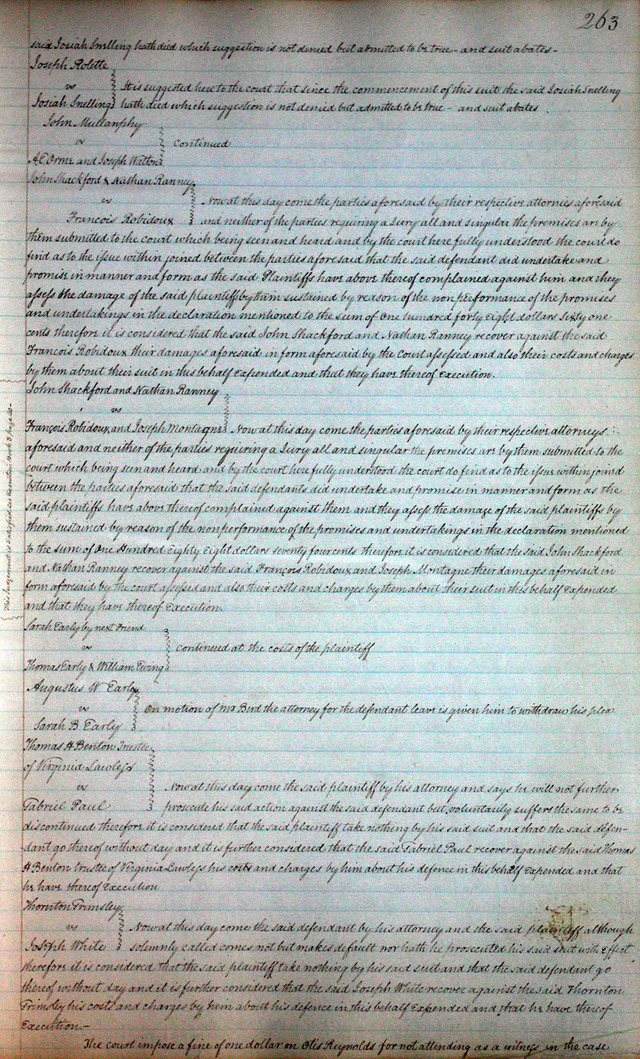 263
said Josiah Snelling hath died which suggestion is not denied but admitted to be true - and suit abates -
Joseph Rolette
vs
It is suggested here to the court that since the commencement of this suit the said Josiah Snelling
Josiah Snelling hath died which suggestion is not denied but admitted to be true - and suit abates
John Mullanphy
vs
continued
A E Orme and Joseph Walton
John Shackford & Nathan Ranney
vs
Now at this day come the parties aforesaid by their respective attornies aforesaid
Francois Robidoux and neither of the parties requiring a Jury all and singular the premises are by
them submitted to the court which being seen and heard and by the court here fully understood the court do
find as to the issue within joined between the parties aforesaid that the said defendant did undertake and
promise in manner and form as the said Plaintiffs have above thereof complained against him and they
assess the damage of the said plaintiff by them sustained by reason of the non performance of the promises
and undertakings in the declaration mentioned to the sum of One hundred forty Eight dollars Sixty one
cents therefore it is considered that the said John Shackford and Nathan Ranney recover against the said
Francois Robidoux their damages aforesaid in form aforesaid by the Court assessed and also their costs and charges
by them about their suit in this behalf Expended and that they have thereof Execution.
John Shackford and Nathan Ranney
vs
François Robidoux and Joseph Montagne Now at this day come the parties aforesaid by their respective attorneys
aforesaid and neither of the parties requiring a Jury all and singular the premises are by them submitted to the
court which being seen and heard and by the court here fully understood the court do find as to the issue within joined
between the parties aforesaid that the said defendants did undertake and promise in manner and form as the
said plaintiffs have above thereof complained against them and they assess the damage of the said plaintiffs by
them sustained by reason of the nonperformance of the promises and undertakings in the declaration mentioned
to the sum of One Hundred Eighty Eight dollars seventy four cents therefore it is considered that the said John Shackford
and Nathan Ranney recover against the said François Robidoux and Joseph Montagne their damages aforesaid in
form aforesaid by the court assessed and also their costs and charges by them about their suit in this behalf Expended
and that they have thereof Execution.
This Judgement is satisfied
Sarah Early by next Friend
vs
continued at the costs of the plaintiff
Thomas Early & William Ewing
Augustus W Early
vs
On motion of Mr Bird the attorney for the defendant leave is given him to withdraw his plea
Sarah B Early
Thomas H Benton Trustee
of Virginia Lawless
vs
Now at this day come the said plaintiff by his attorney and says he will not further
Gabriel Paul prosecute his said action against the said defendant but voluntarily suffers the same to be
discontinued therefore it is considered that the said plaintiff take nothing by his said suit and that the said defen-
dant go thereof without day and it is further considered that the said Gabriel Paul recover against the said Thomas
H Benton trustee of Virginia Lawless his costs and charges by him about his defence in this behalf Expended and that
he have thereof Execution
Thornton Grimsley
vs
Now at this day come the said defendant by his attorney and the said plaintiff although
Joseph White solemnly called comes not but makes default nor hath he prosecuted his said suit with Effect
therefore it is considered that the said plaintiff take nothing by his said suit and that the said defendant go
thereof without day and it is further considered that the said Joseph White recover against the said Thornton
Grimsley his costs and charges by him about his defence in this behalf Expended and that he have thereof
Execution -
The court impose a fine of one dollar on Otis Reynolds for not attending as a witness in the case